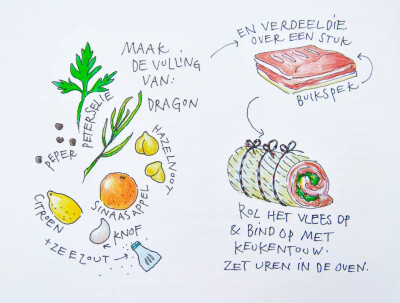 MAAK
DE VULLING
VAN:
DRAGON
PETERSELIE
HAZELNOOT
PEPER
CITROEN
SINAASAPPEL
KNOF
+ZEEZOUT
EN VERDEEL DIE
OVER EEN STUK
BUIKSPEK
ROL HET VLEES OP
& BIND OP MET
KEUKENTOUW.
ZET UREN IN DE OVEN.